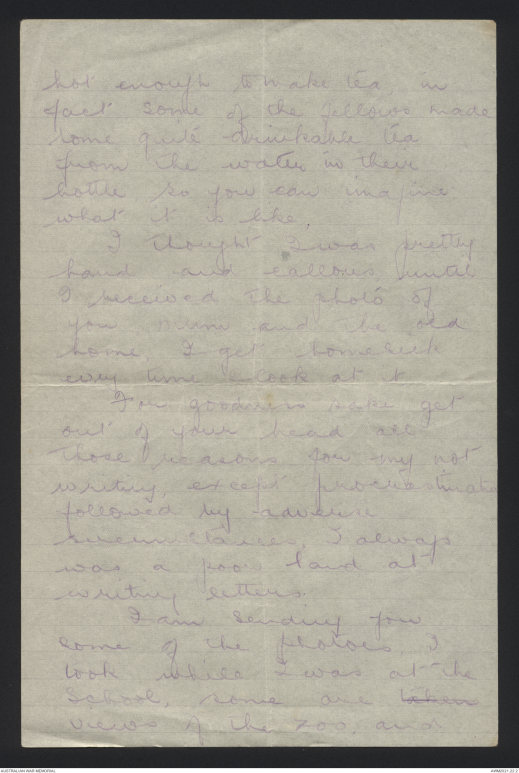 hot enough to make tea, in
fact some of the fellows made
some quite drinkable tea
from the water in their
bottle so you can imagine
what it is like.
I thought I was pretty
hard and callous until
I received the photo of
you Mum and the old
home, I get homesick
every time I look at it
For goodness sake get
out of your head all
those reasons for my not
writing, except procrastination
followed by adverse
circumstances. I always
was a poor hand at
writing letters.
I am sending you
some of the photos, I
took while I was at the
School, some are taken
views of the zoo, and
AUSTRALIAN WAR MEMORIAL